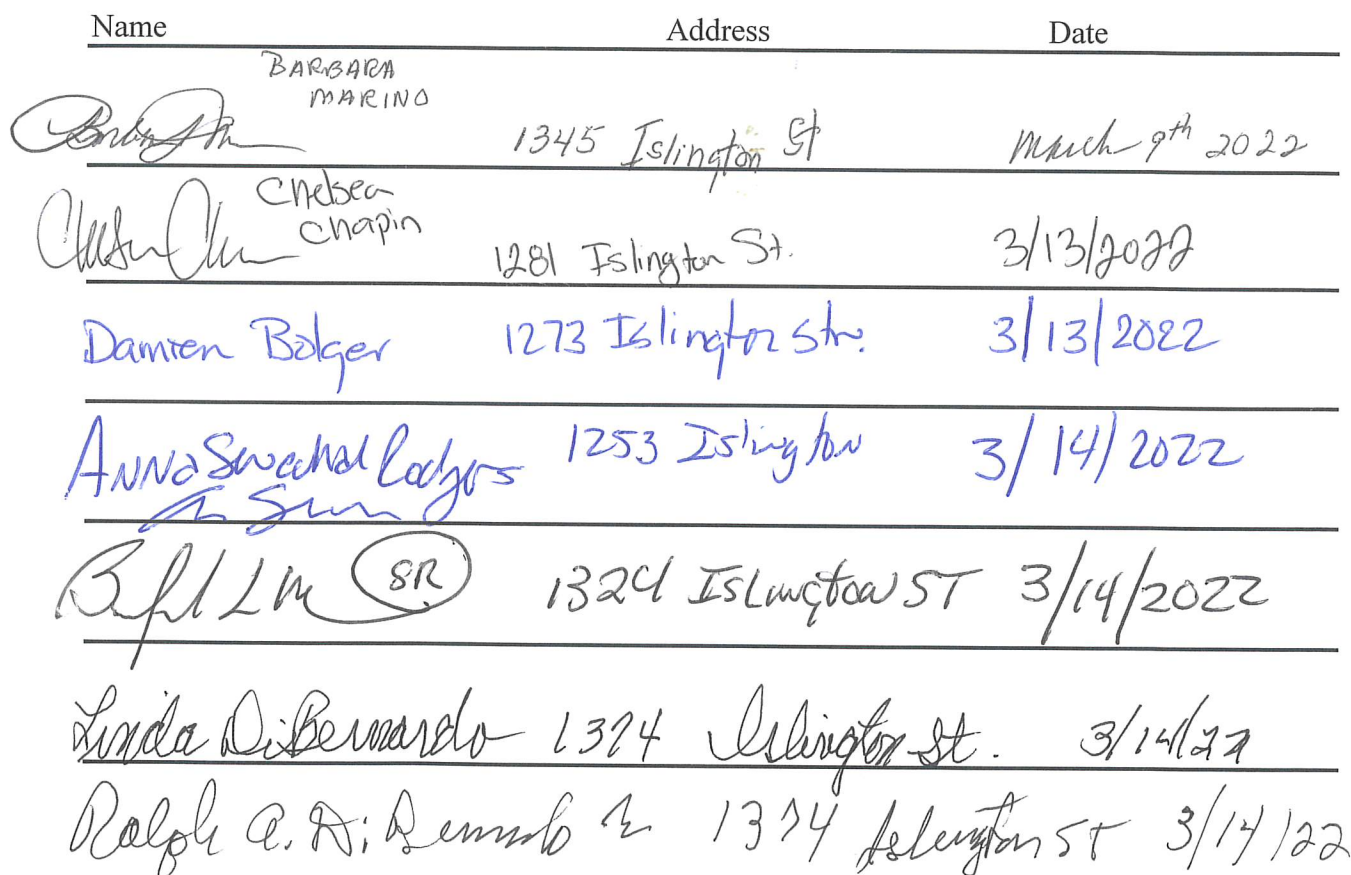 Name Address Date
BARBARA
MARINO
1345 Islington St March 9th 2022
Chelsea
Chapin
1281 Islington St. 3/13/2022
Damien Bolger 1273 Islington Str. 3/13/2022
Anna Rodgers 1253 Islington 3/14/2022
SR 1324 Islington ST 3/14/2022
Linda DiBernardo 1374 Islington St. 3/14/22
Ralph A. DiBernardo 1374 Islington ST 3/14/22